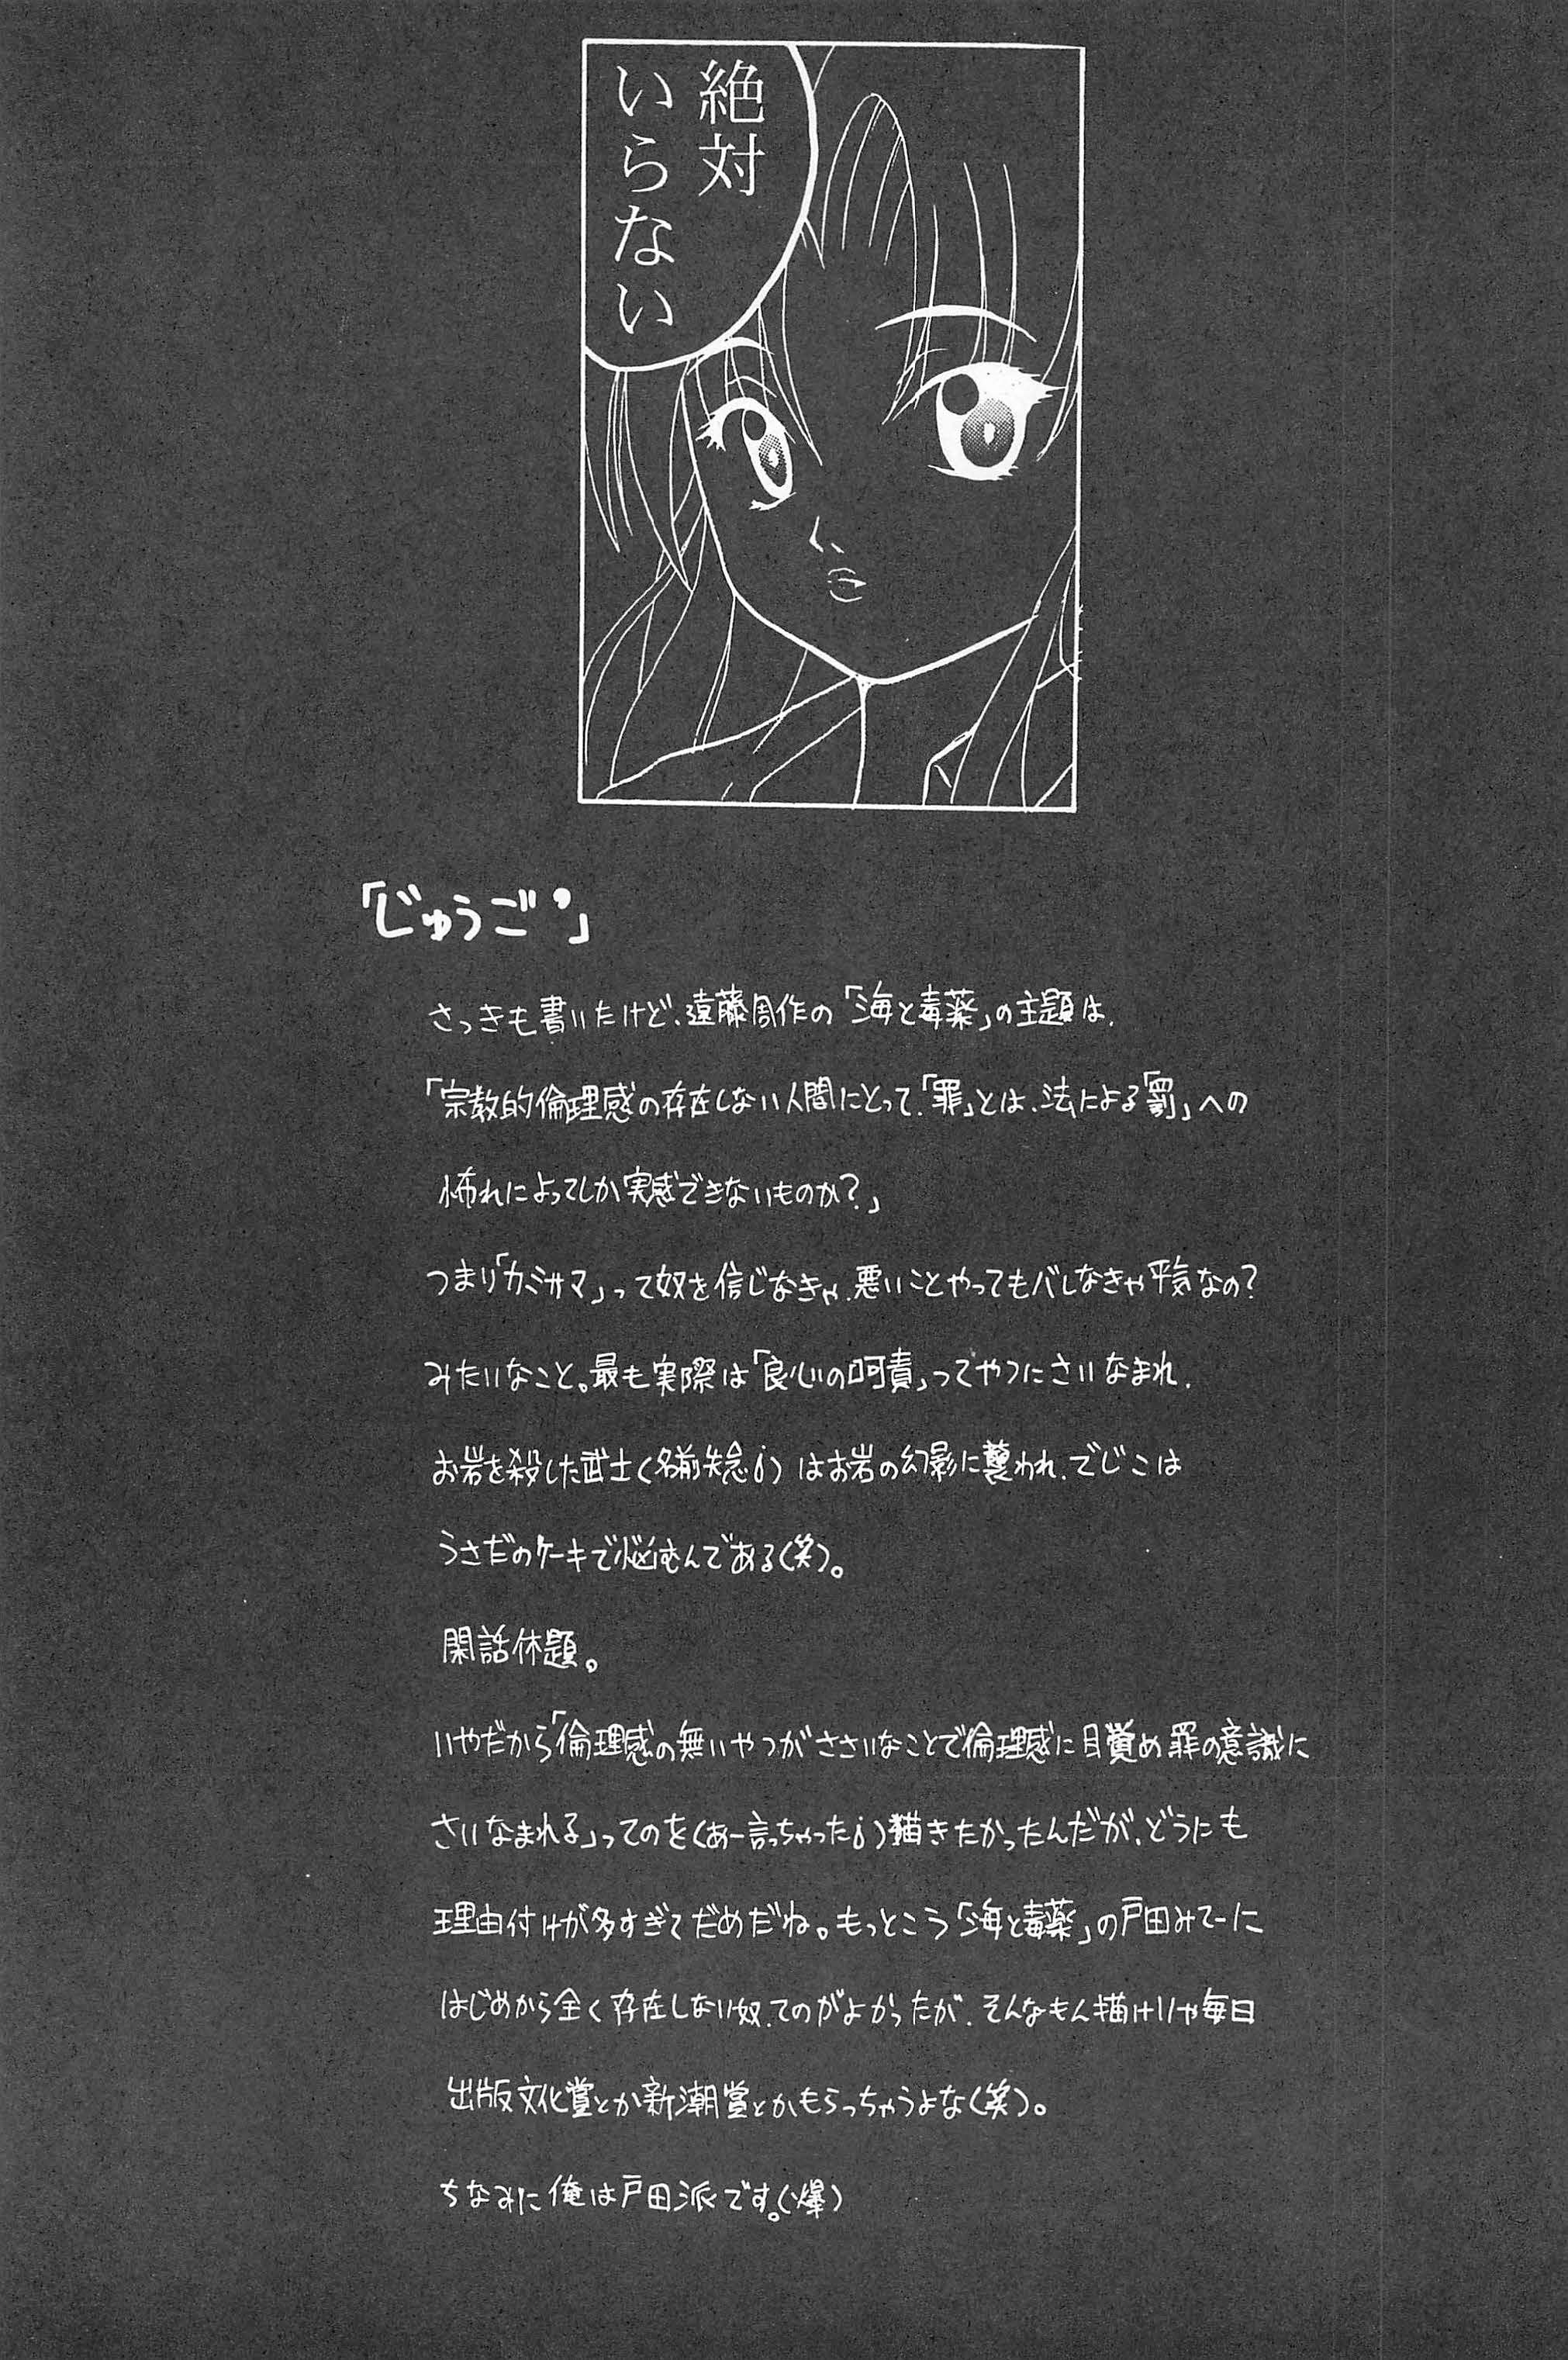 絶対
いらない
「じゅうご」
さっきも書いたけど、遠藤周作の「海と毒薬」の主題は、
「宗教的倫理感の存在しない人間にとって、「罪」とは、法による「罰」への
怖れによってしか実感できないものか?」
つまり「カミサマ」って奴を信じなきゃ、悪いことやってもバレなきゃ平気なの?
みたいなこと。最も実際は「良心の呵責」ってやつにさいなまれ、
お岩を殺した武士(名前失念;)はお岩の幻影に襲われ、でじこは
うさだのケーキで悩むんである(笑)。
閑話休題。
いやだから「倫理感の無いやつがささいなことで倫理感に目覚め罪の意識に
さいなまれる」ってのを(あー言っちゃった;)描きたかったんだが、どうにも
理由付けが多すぎてだめだね。もっとこう「海と毒薬」の戸田みてーに
はじめから全く存在しない奴、てのがよかったが、そんなもん描けりゃ毎日
出版文化賞とか新潮賞とかもらっちゃうよな(笑)。
ちなみに俺は戸田派です。(爆)